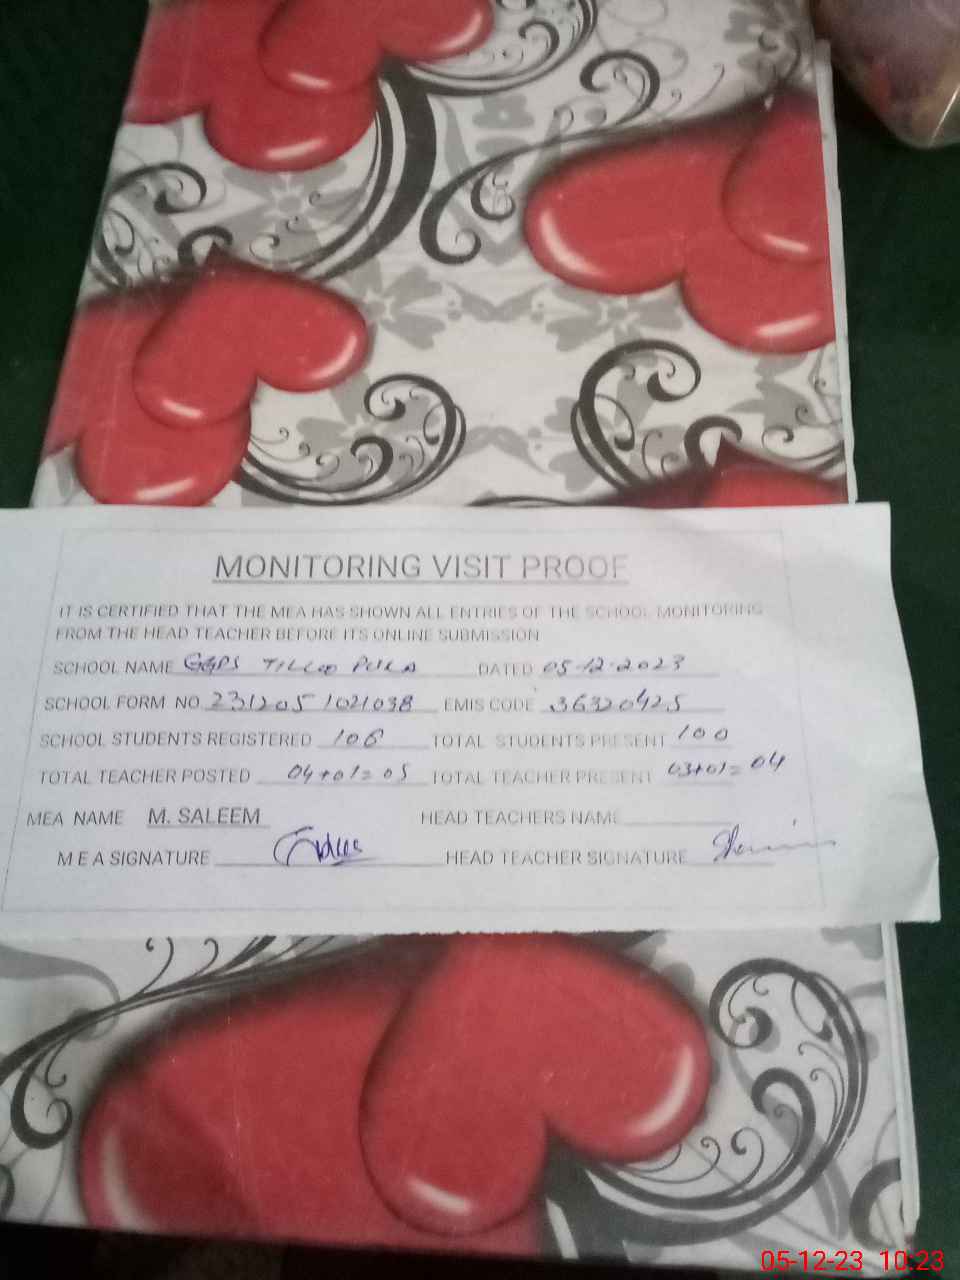 MONITORING VISIT PROOF
IT IS CERTIFIED THAT THE MEA HAS SHOWN ALL ENTRIES OF THE SCHOOL MONITORING
FROM THE HEAD TEACHER BEFORE ITS ONLINE SUBMISSION
SCHOOL NAME GGPS DATED 05-12-2023
SCHOOL FORM NO 2312051021038 EMIS CODE 36320425
SCHOOL STUDENTS REGISTERED 106 TOTAL STUDENTS PRESENT 100
TOTAL TEACHER POSTED 04+01=05 TOTAL TEACHER PRESENT 03+01=04
MEA NAME M. SALEEM HEAD TEACHERS NAME
M E A SIGNATURE HEAD TEACHER SIGNATURE
05-12-23 10:23